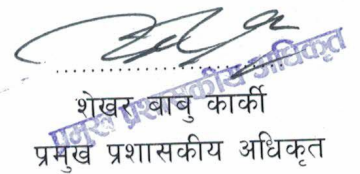 प्रमुख प्रशासकीय अधिकृत
शेखर बाबु कार्की
प्रमुख प्रशासकीय अधिकृत